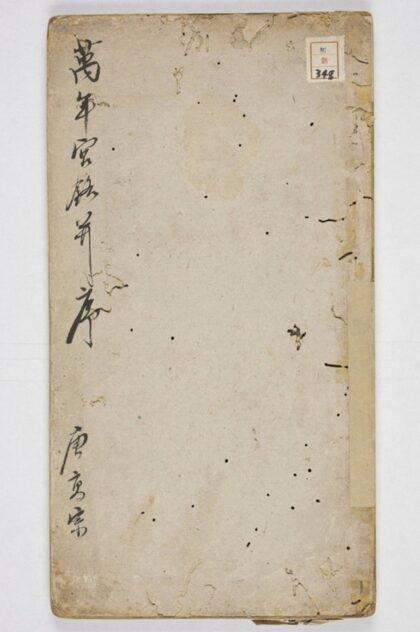 萬年宮銘并序
唐高宗
348